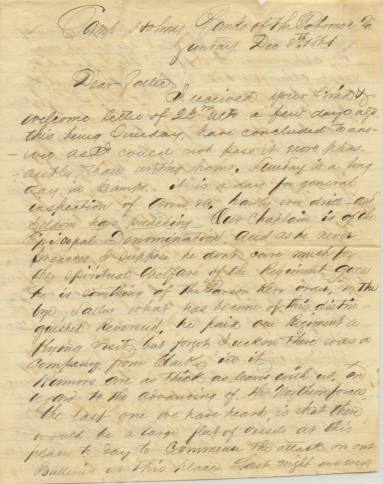 Camp Holmes Banks of the Potomac Va
Sunday Dec 8th 1861
Dear
I received your kind &
welcome letter of 22nd ult a few days ago
this being Sunday, have concluded to ans-
-wer as I could not pass it more pleas
antly than writing home. Sunday is a long
day in Camps. it is a day for general
inspection of Arms &c, hardly ever drill and
seldom have preaching. Our Chaplain is of the
Episcopal Denomination. and as he never
preaches I suppose he dont care much for
the spiritual welfare of the Regiment guess
he is something of the Parson Kerr order, by the
bye what has become of this distin
guished Reverend. he paid our Regiment a
flying visit but forgot I reckon there was a
Company from Clark in it
Rumors are as thick as leaves with us, in
regard to the advancing of the Northern forces
the last one we have heard is that there
would be a large fleet of vessels at this
place to day to commence the attack on our
Batteries at this place Last night we were